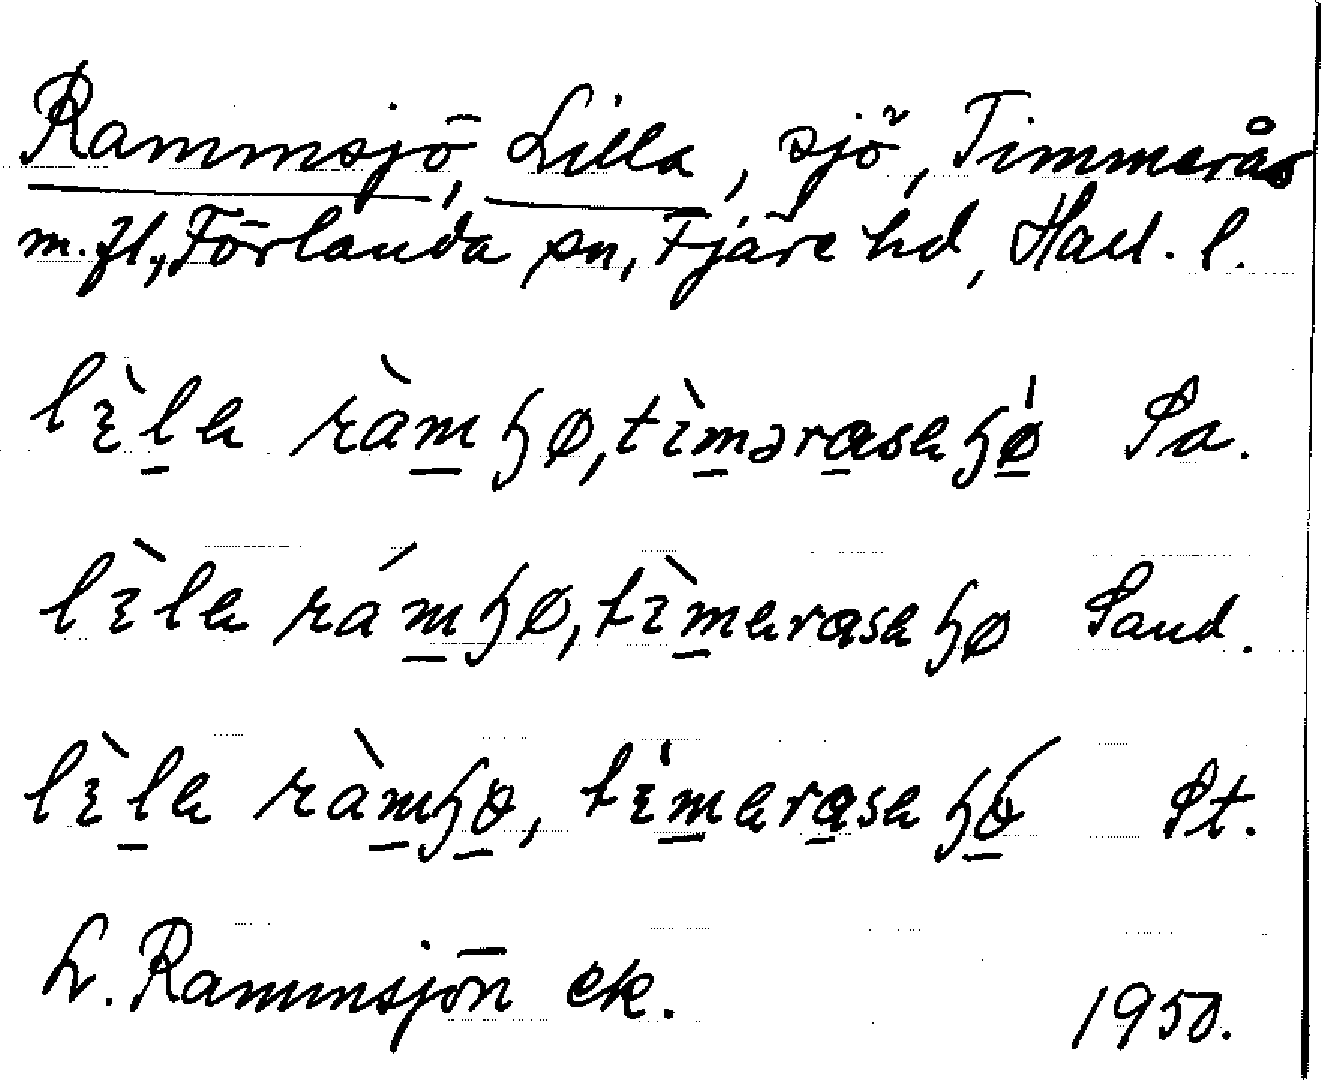 Rammsjö, Lilla, sjö, Timmerås
m.fl., Förlanda sn, Fjäre hd, Hall. l.
lɩ̀la ràmɧø, tɩ̀mərɑsaɧǿ Sa.
lɩ̀la rámɧø, tɩ̀marɑsaɧø Sand.
lɩ̀la ràmɧo, tɩ̀marɑsaɧó St.
L. Rammsjön ek. 1950.